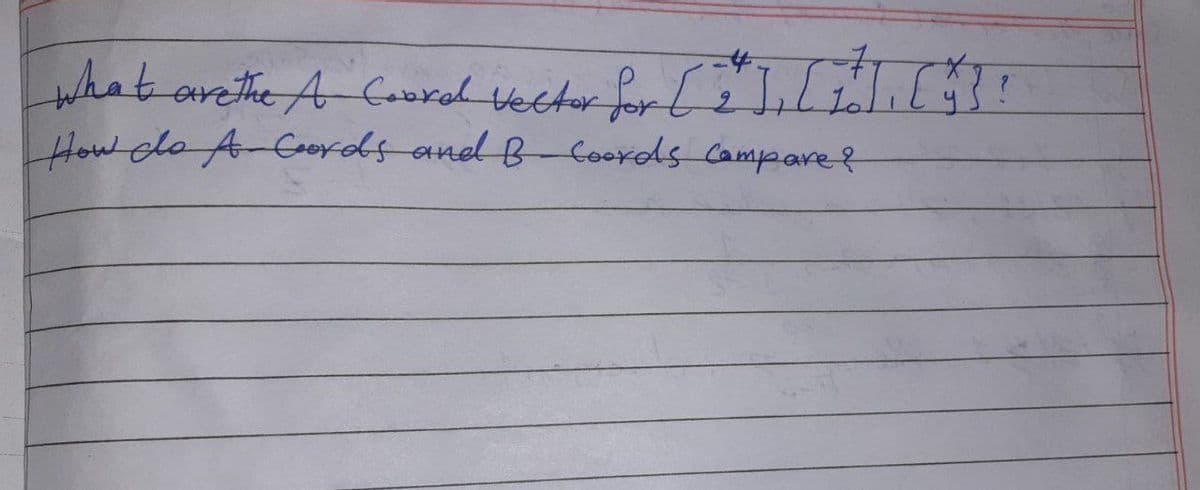 What are the A-Coord Vector for [-4 2], [-7 10], [x y]?
How do A-Coords and B-Coords Compare?